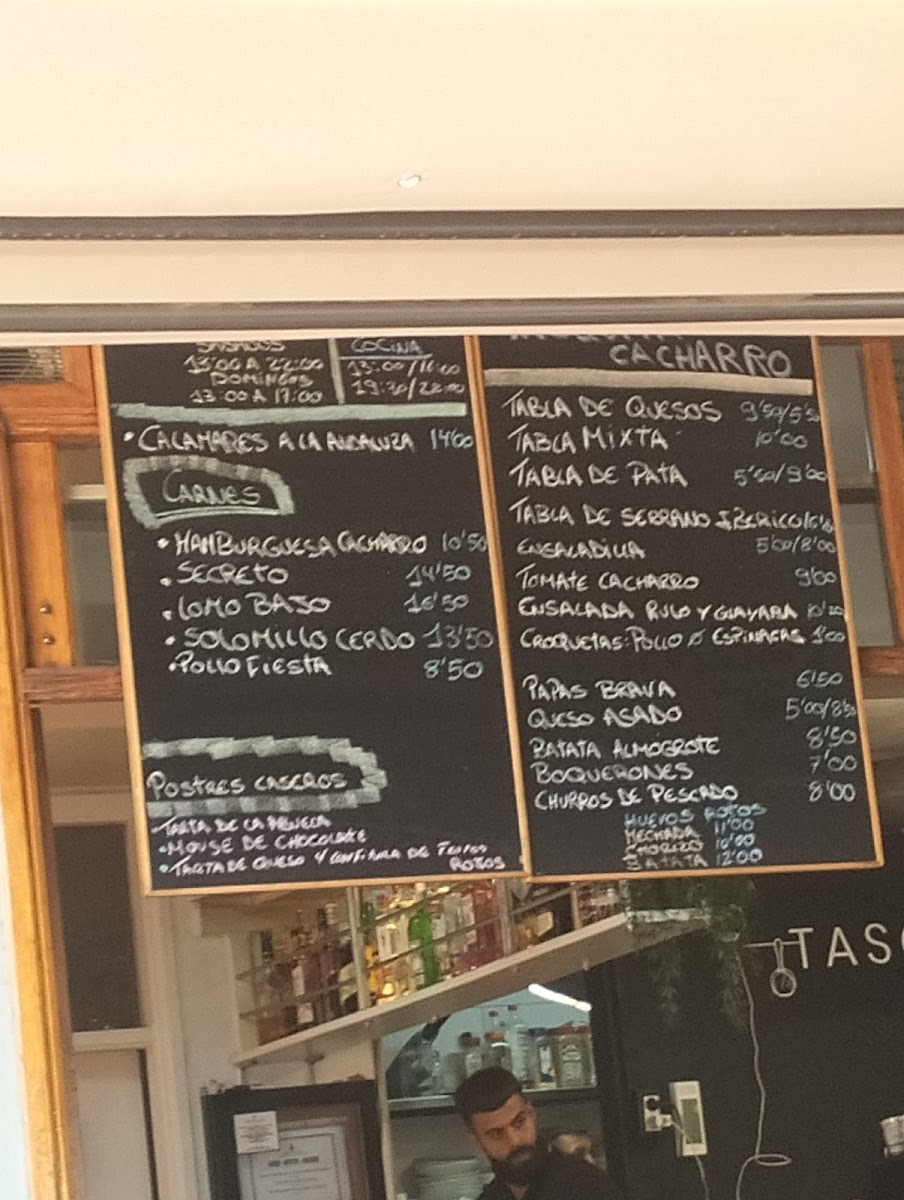 SABADOS
13:00 A 22:00
DOMINGOS
13:00 A 17:00
COCINA
13:00/16:00
19:30/22:00
• CALAMARES A LA ANDALUZA 14'00
CARNES
• HAMBURGUESA CACHARRO 10'50
• SECRETO 14'50
• LOMO BAJO 16'50
• SOLOMILLO CERDO 13'50
• POLLO FIESTA 8'50
POSTRES CASEROS
• TARTA DE LA ABUELA
• MOUSE DE CHOCOLATE
• TARTA DE QUESO Y CONFITURA DE FRUTOS
ROJOS
CACHARRO
TABLA DE QUESOS 9'50/5'50
TABLA MIXTA 10'00
TABLA DE PATA 5'50/9'00
TABLA DE SERRANO IBERICO
ENSALADILLA 5'00/8'00
TOMATE CACHARRO 9'00
ENSALADA RULO Y GUAYABA
CROQUETAS: POLLO Ó ESPINACAS 1'00
PAPAS BRAVA 6'50
QUESO ASADO 5'00/8'50
BATATA ALMOGROTE 8'50
BOQUERONES 7'00
CHURROS DE PESCADO 8'00
HUEVOS ROTOS
MECHADA 11'00
CHORIZO 10'00
BATATA 12'00
TAS